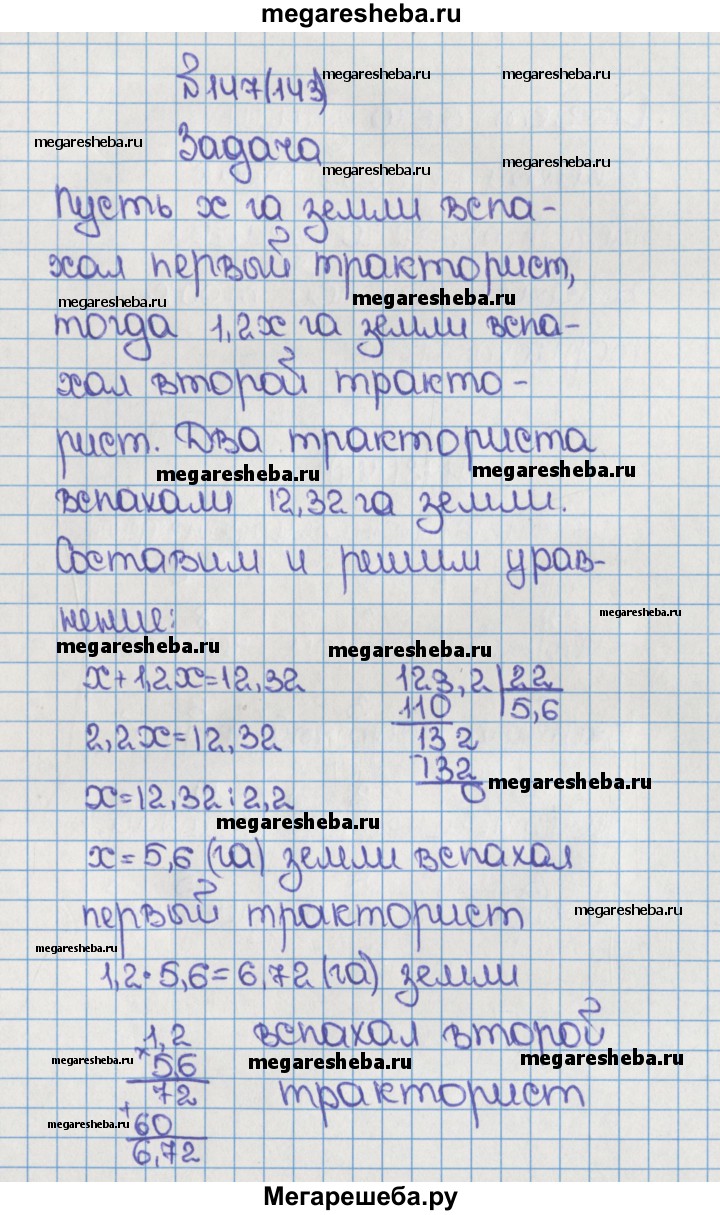 megaresheba.ru
№147(143) megaresheba.ru
megaresheba.ru
megaresheba.ru Задача megaresheba.ru
megaresheba.ru
Пусть x га земли вспа-
хал первый тракторист,
megaresheba.ru megaresheba.ru
тогда 1,2x га земли вспа-
хал второй тракто-
рист. Два тракториста
megaresheba.ru megaresheba.ru
вспахали 12,32 га земли.
Составим и решим урав-
нение: megaresheba.ru
megaresheba.ru megaresheba.ru
x+1,2x=12,32 123,2 22
110 5,6
2,2x=12,32 132
132
x=12,32:2,2 0 megaresheba.ru
megaresheba.ru
x=5,6 (га) земли вспахал
первый тракторист megaresheba.ru
megaresheba.ru
1,2·5,6=6,72 (га) земли
1,2 вспахал второй
megaresheba.ru × 56 megaresheba.ru megaresheba.ru
72 тракторист
megaresheba.ru + 60
6,72
Мегарешеба.ру